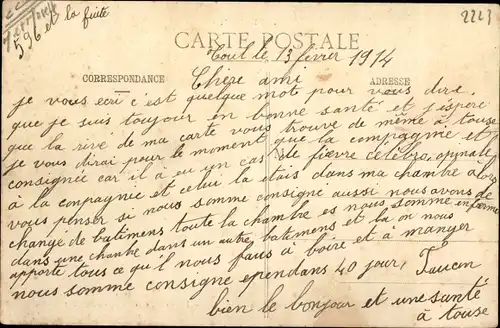 596 et la fuite
2223
CARTE POSTALE
Toul le 13 fevrier 1914
CORRESPONDANCE
ADRESSE
Chère ami
je vous ecri c'est quelque mot pour vous dire
que je suis toujour en bonne santé et j'espere
que la rive de ma carte vous trouve de même à touse
je vous dirai pour le moment que la compagnie et
consignée car il à eu un cas de fièvre
à la conpagnie et celui la étais dans ma chambre alors
vous penser si nous somme consigné aussi nous avons de
changé de batimens toute la chambre es nous somme enfermé
dans une chanbre dans un autre batimens et la on nous
apporte tous ce qu'il nous faus à boire et à manger
nous somme consigne ependans 40 jour,
bien le bonjour et une santé
à touse